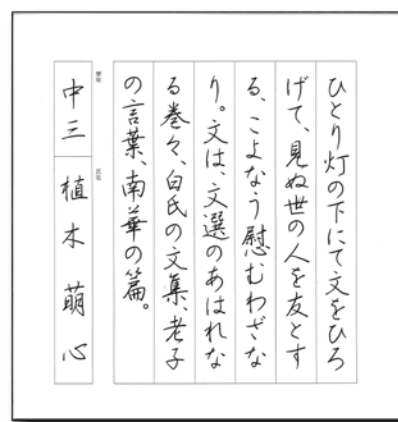 ひとり灯の下にて文をひろ
げて、見ぬ世の人を友とす
る、こよなう慰むわざな
り。文は、文選のあはれな
る巻々、白氏の文集、老子
の言葉、南華の篇。
学年
中三
氏名
植木萌心